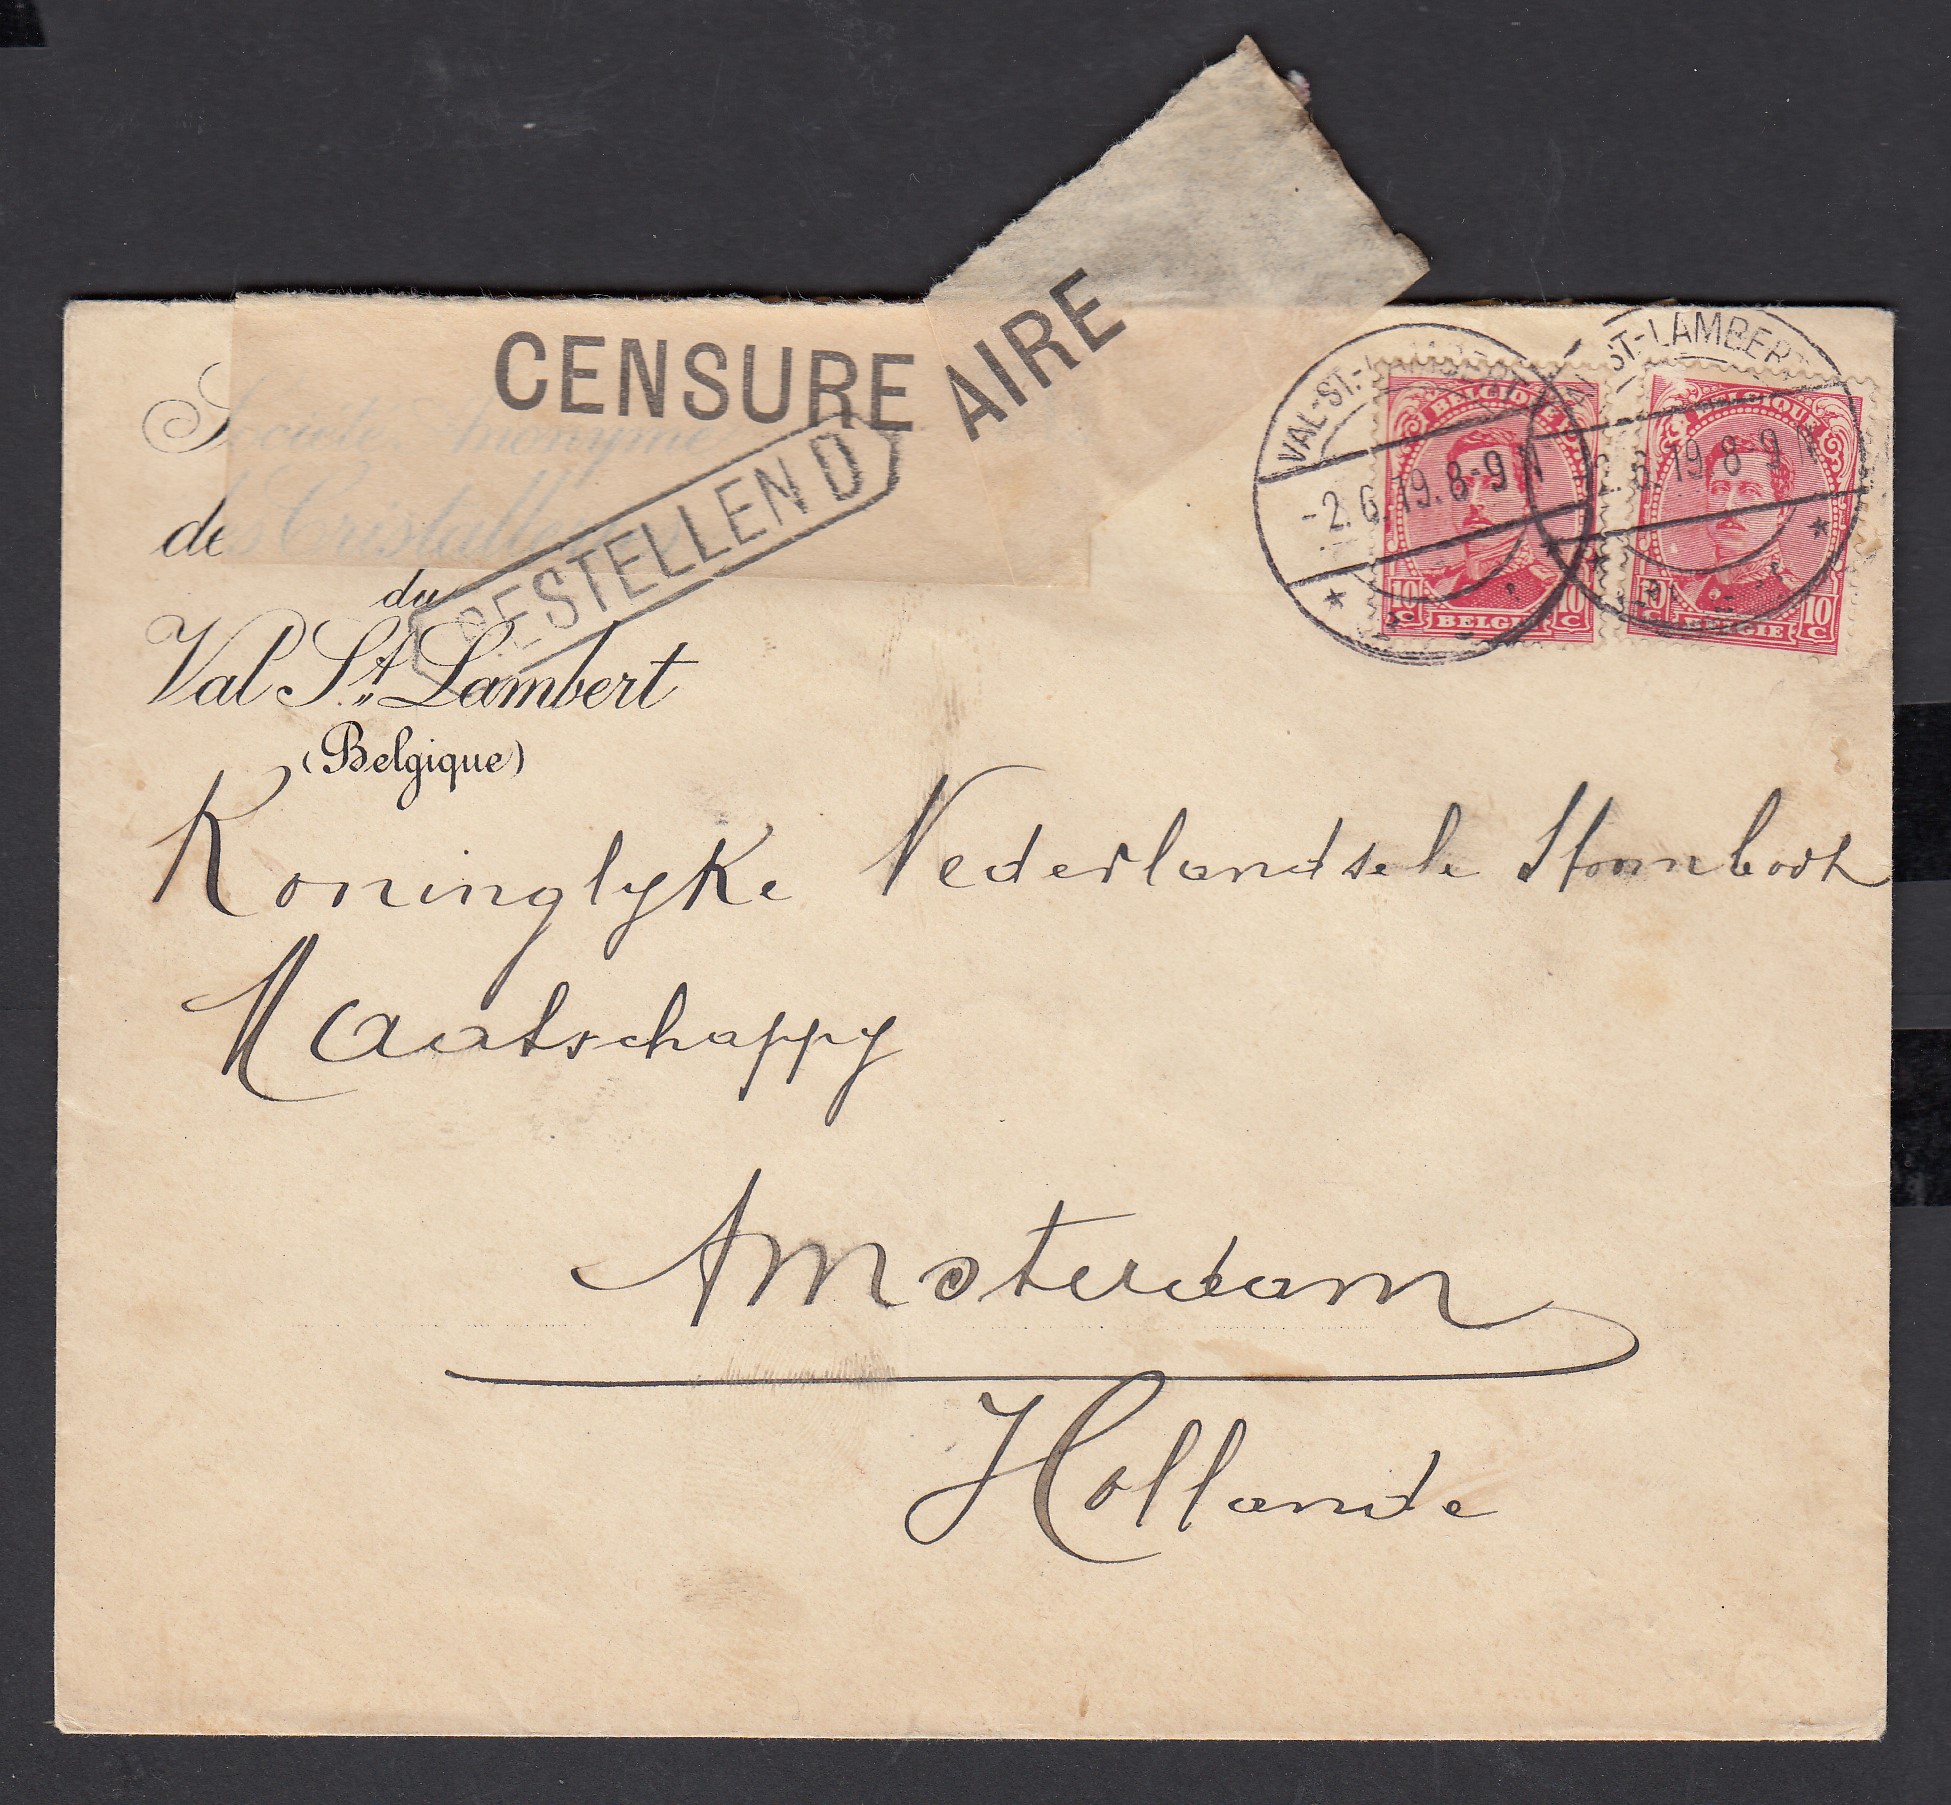 CENSURE
AIRE
BESTELLEND
Société Anonyme
des Cristalleries
du
Val St. Lambert
(Belgique)
VAL-ST.-LAMBERT
-2.6.19.8-9 N
BELGIQUE
10 C BELGIE 10 C
ST-LAMBERT
2.6.19 8-9 N
BELGIQUE
10 C BELGIE 10 C
Koninglyke Nederlandsche Stoomboot
Maatschappy
Amsterdam
Hollande